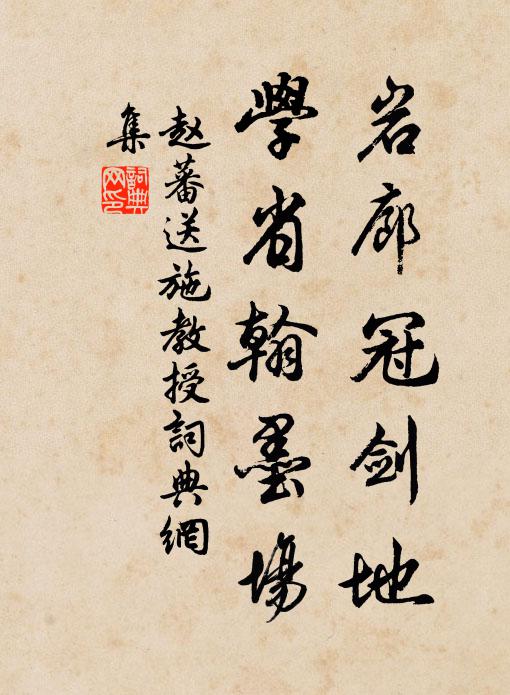 岩廊冠剑地
學省翰墨場
赵蕃送施教授詞典網
集
詞典
网印